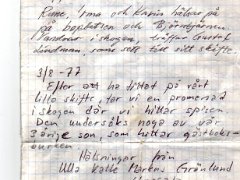 Rune, Irma och Karin hälsar på
på baptisten och Björntjärnen
i skogen, träffar Gustaf
Lindman som sett till sitt skifte.
3/8-77
Efter att ha tittat på vårt
lilla skifte, tar vi en promenad
i skogen där vi hittar spisen
Den undersöks noga av vår
3årige son, som hittar gästboks-
burken
Hälsningar från
Ulla Kalle Markus Grönlund